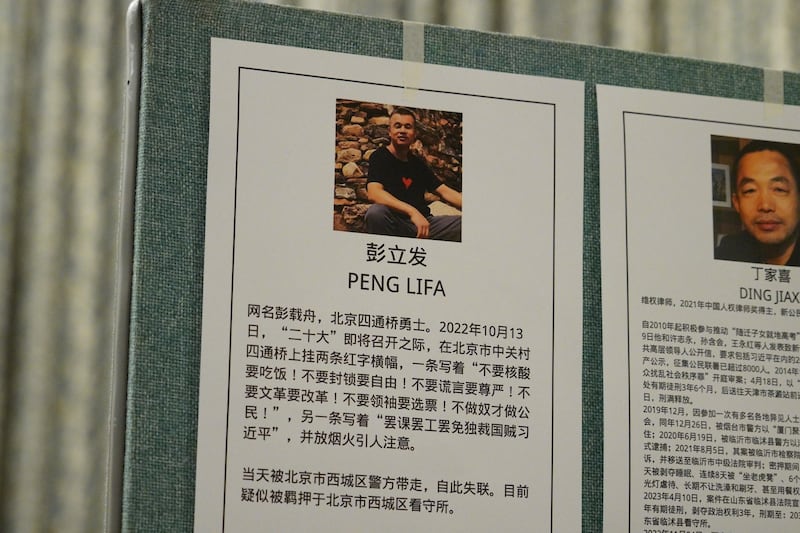 彭立发
PENG LIFA
网名彭载舟，北京四通桥勇士。2022年10月13
日，“二十大”即将召开之际，在北京市中关村
四通桥上挂两条红字横幅，一条写着“不要核酸
要吃饭！不要封锁要自由！不要谎言要尊严！不
要文革要改革！不要领袖要选票！不做奴才做公
民！”，另一条写着“罢课罢工罢免独裁国贼习
近平”，并放烟火引人注意。
当天被北京市西城区警方带走，自此失联。目前
疑似被羁押于北京市西城区看守所。
丁家喜
DING JIAX
维权律师，2021年中国人权律师奖得主，新公民
自2010年起积极参与推动“随迁子女就地高考”
9日他和许志永，孙含会，王永红等人发表致新
共高层领导人公开信，要求包括习近平在内的2
产公示，征集公民联署已超过8000人。2014年
众扰乱社会秩序罪”开庭审案；4月18日，以“
处有期徒刑3年6个月，后送往天津市茶淀站前
日，刑满释放。
2019年12月，因参加一次有多名各地异见人士
会，同年12月26日，被烟台警方以“厦门聚
住；2020年6月19日，被临沂市临沭县警方以
式逮捕；2021年8月5日，其案被临沂市检察院
诉，并移送至临沂市中级法院审判；密押期间
天被剥夺睡眠、连续8天被“坐老虎凳”、6个
光灯虐待、长期不让洗澡和刷牙、甚至用餐权
2023年4月10日，案件在山东省临沭县法院宣
年有期徒刑，剥夺政治权利3年，刑期至：203
东省临沭县看守所。